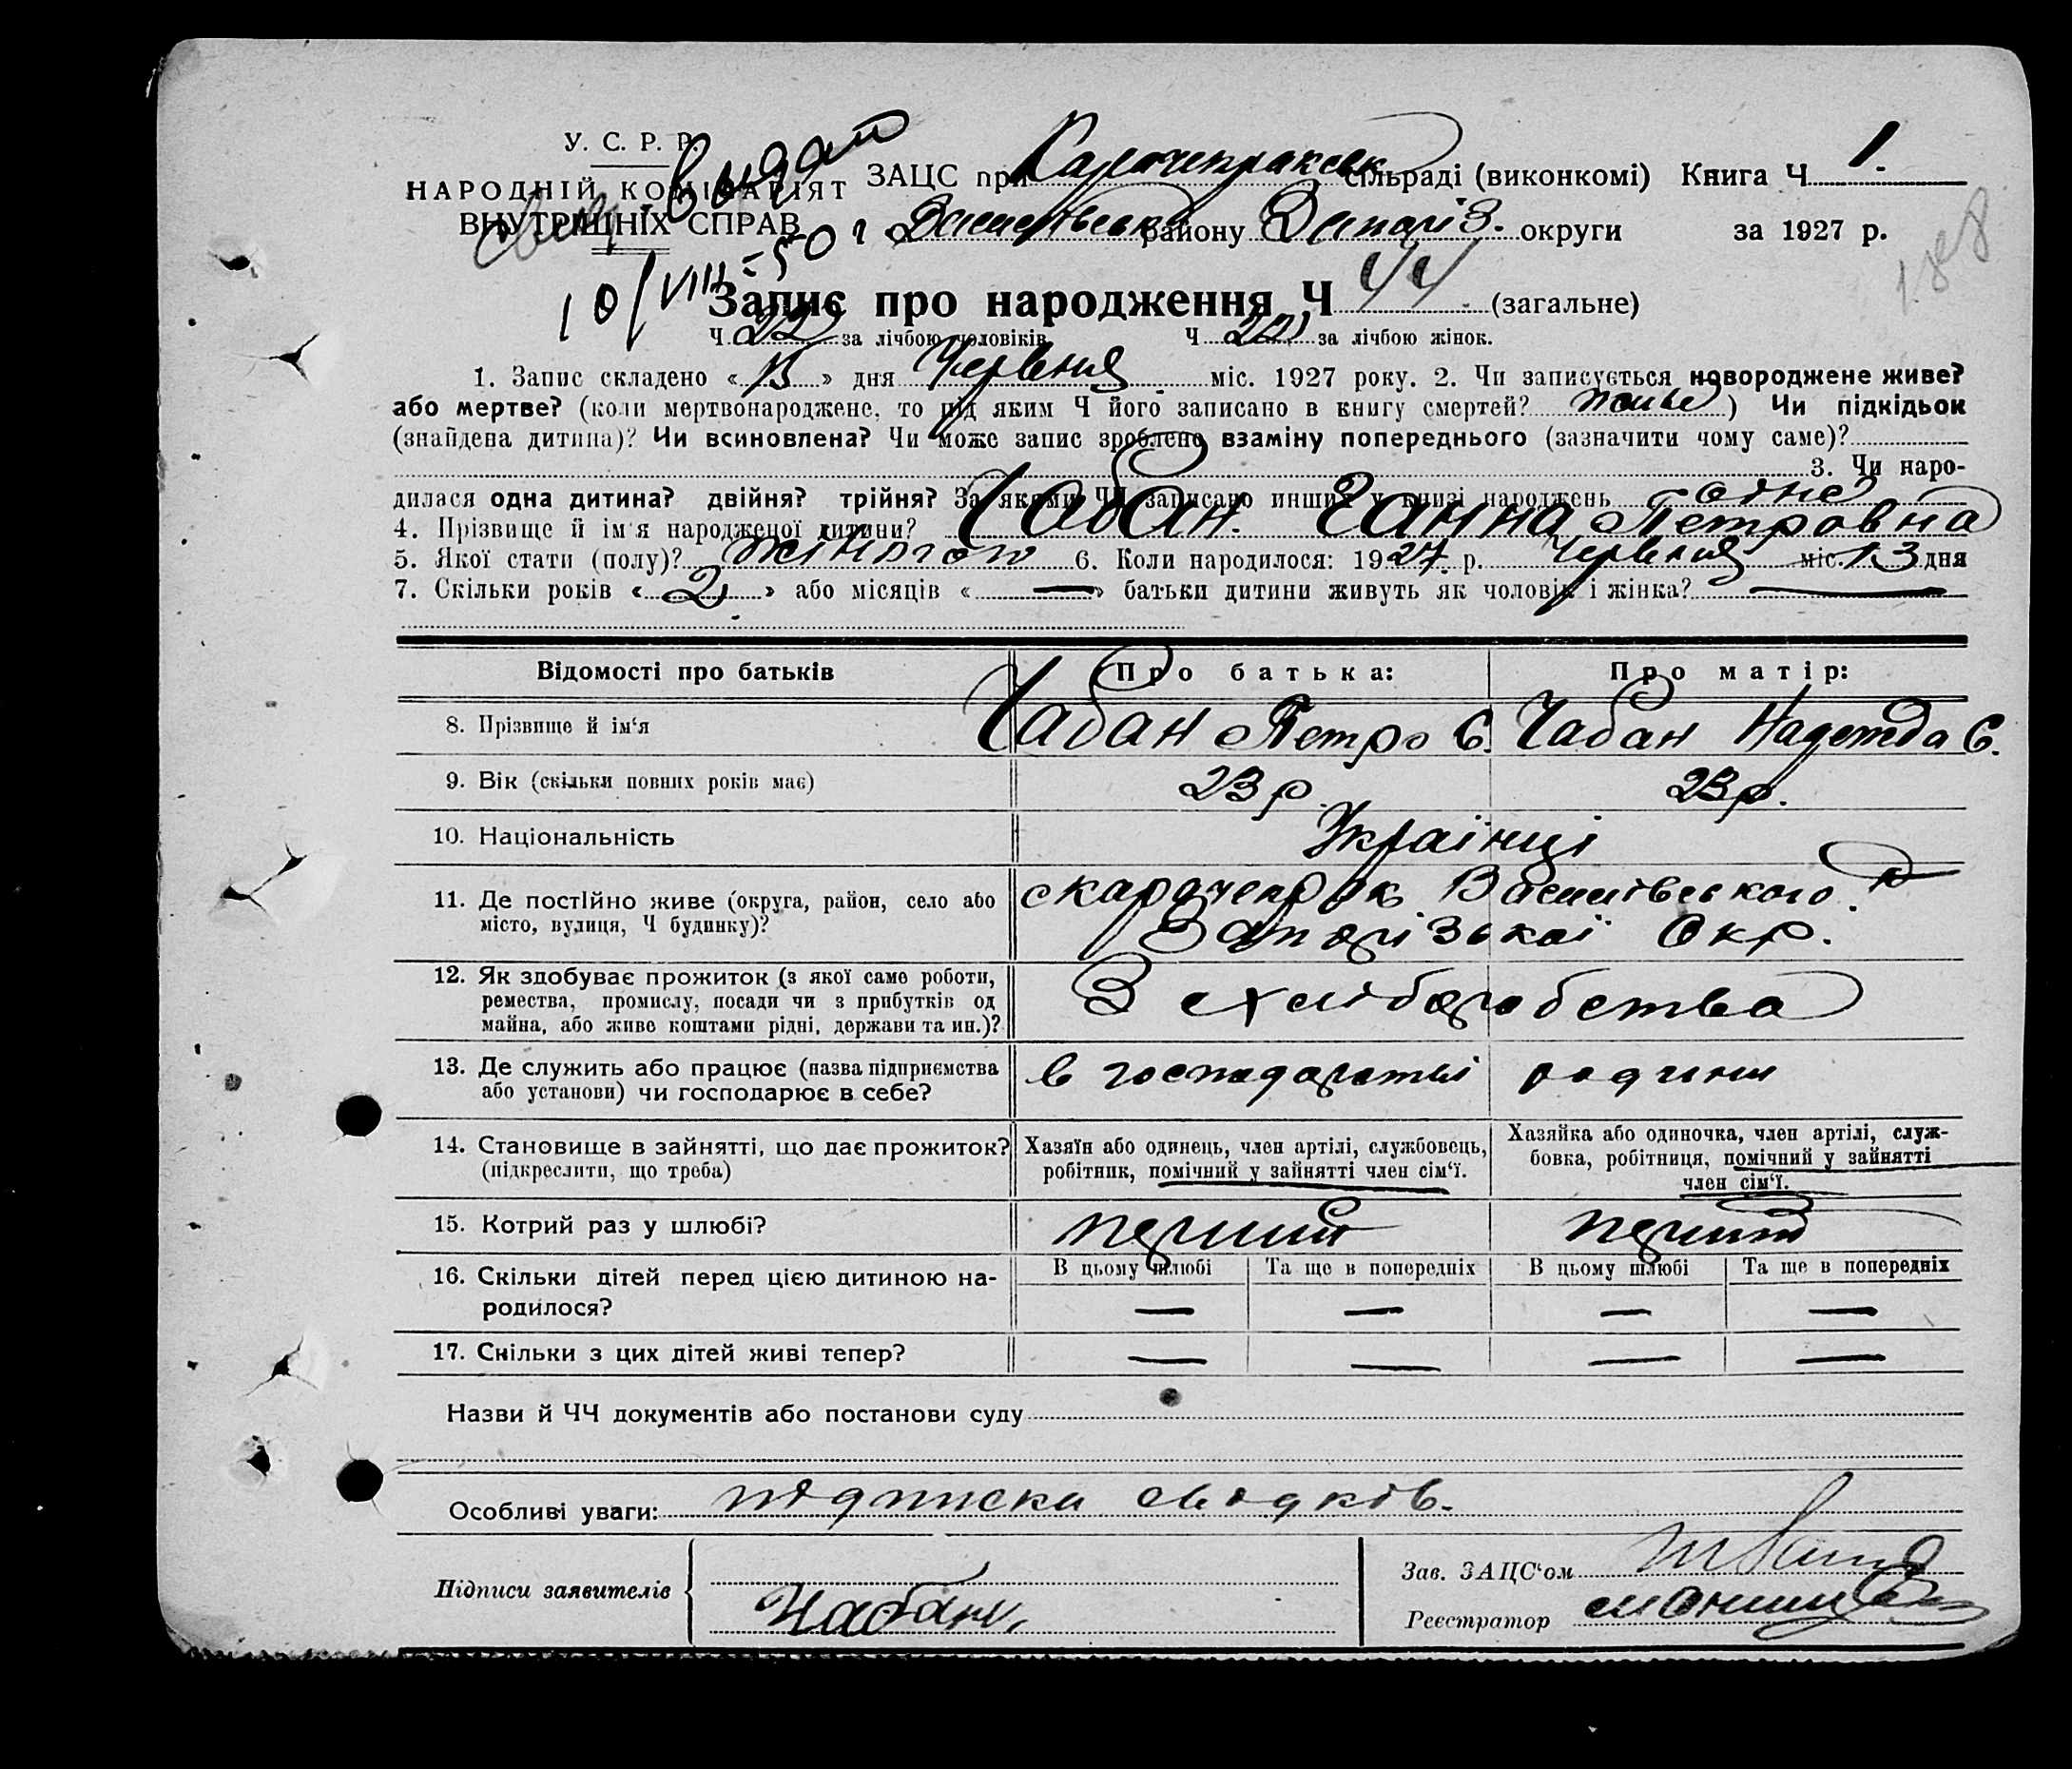 У. С. Р. Р.
НАРОДНІЙ КОМІСАРІЯТ
ВНУТРІШНІХ СПРАВ
выдат
10/VIII-50 г.
ЗАЦС при сільраді (виконкомі) Книга Ч 1.
Василівськ району Запоріз. округи за 1927 р.
Запис про народження Ч 44 (загальне)
Ч 22 за лічбою чоловіків Ч 22 за лічбою жінок.
1. Запис складено « » дня Червня міс. 1927 року. 2. Чи записується новороджене живе?
або мертве? (коли мертвонароджене, то під яким Ч його записано в книгу смертей? живе) Чи підкідьок
(знайдена дитина)? Чи всиновлена? Чи може запис зроблено взаміну попереднього (зазначити чому саме)?
3. Чи наро-
дилася одна дитина? двійня? трійня? За якими ЧЧ записано инших у книзі народжень одне
4. Прізвище й ім'я народженої дитини? Чабан Ганна Петровна
5. Якої стати (полу)? жіночої 6. Коли народилося: 1927 р. Червня міс. 13 дня
7. Скільки років « 2 » або місяців « — » батьки дитини живуть як чоловік і жінка? —
Відомості про батьків Про батька: Про матір:
8. Прізвище й ім'я Чабан Петро Є. Чабан Надежда Є.
9. Вік (скільки повних років має) 23 р. 23 р.
10. Національність Українці
11. Де постійно живе (округа, район, село або місто, вулиця, Ч будинку)? с Карачекрак Василівського р
Запорізької Окр.
12. Як здобуває прожиток (з якої саме роботи,
ремества, промислу, посади чи з прибутків од
майна, або живе коштами рідні, держави та ин.)? З хліборобства
13. Де служить або працює (назва підприємства
або установи) чи господарює в себе? в господарстві родини
14. Становище в зайнятті, що дає прожиток?
(підкреслити, що треба)
Хазяїн або одинець, член артілі, службовець,
робітник, помічний у зайнятті член сім'ї.
Хазяйка або одиночка, член артілі, служ-
бовка, робітниця, помічний у зайнятті
член сім'ї.
15. Котрий раз у шлюбі? перший перший
16. Скільки дітей перед цією дитиною на-
родилося?
В цьому шлюбі Та ще в попередніх В цьому шлюбі Та ще в попередніх
— — — —
17. Скільки з цих дітей живі тепер? — — — —
Назви й ЧЧ документів або постанови суду
Особливі уваги: підписка свідків.
Підписи заявителів Чабан
Зав. ЗАЦС'ом
Реєстратор